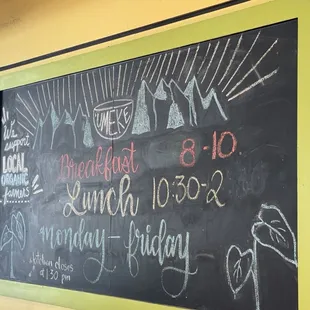 UMEKE
We support
LOCAL
ORGANIC
farmers
Breakfast 8-10
Lunch 10:30-2
monday-friday
kitchen closes
at 1:30 pm